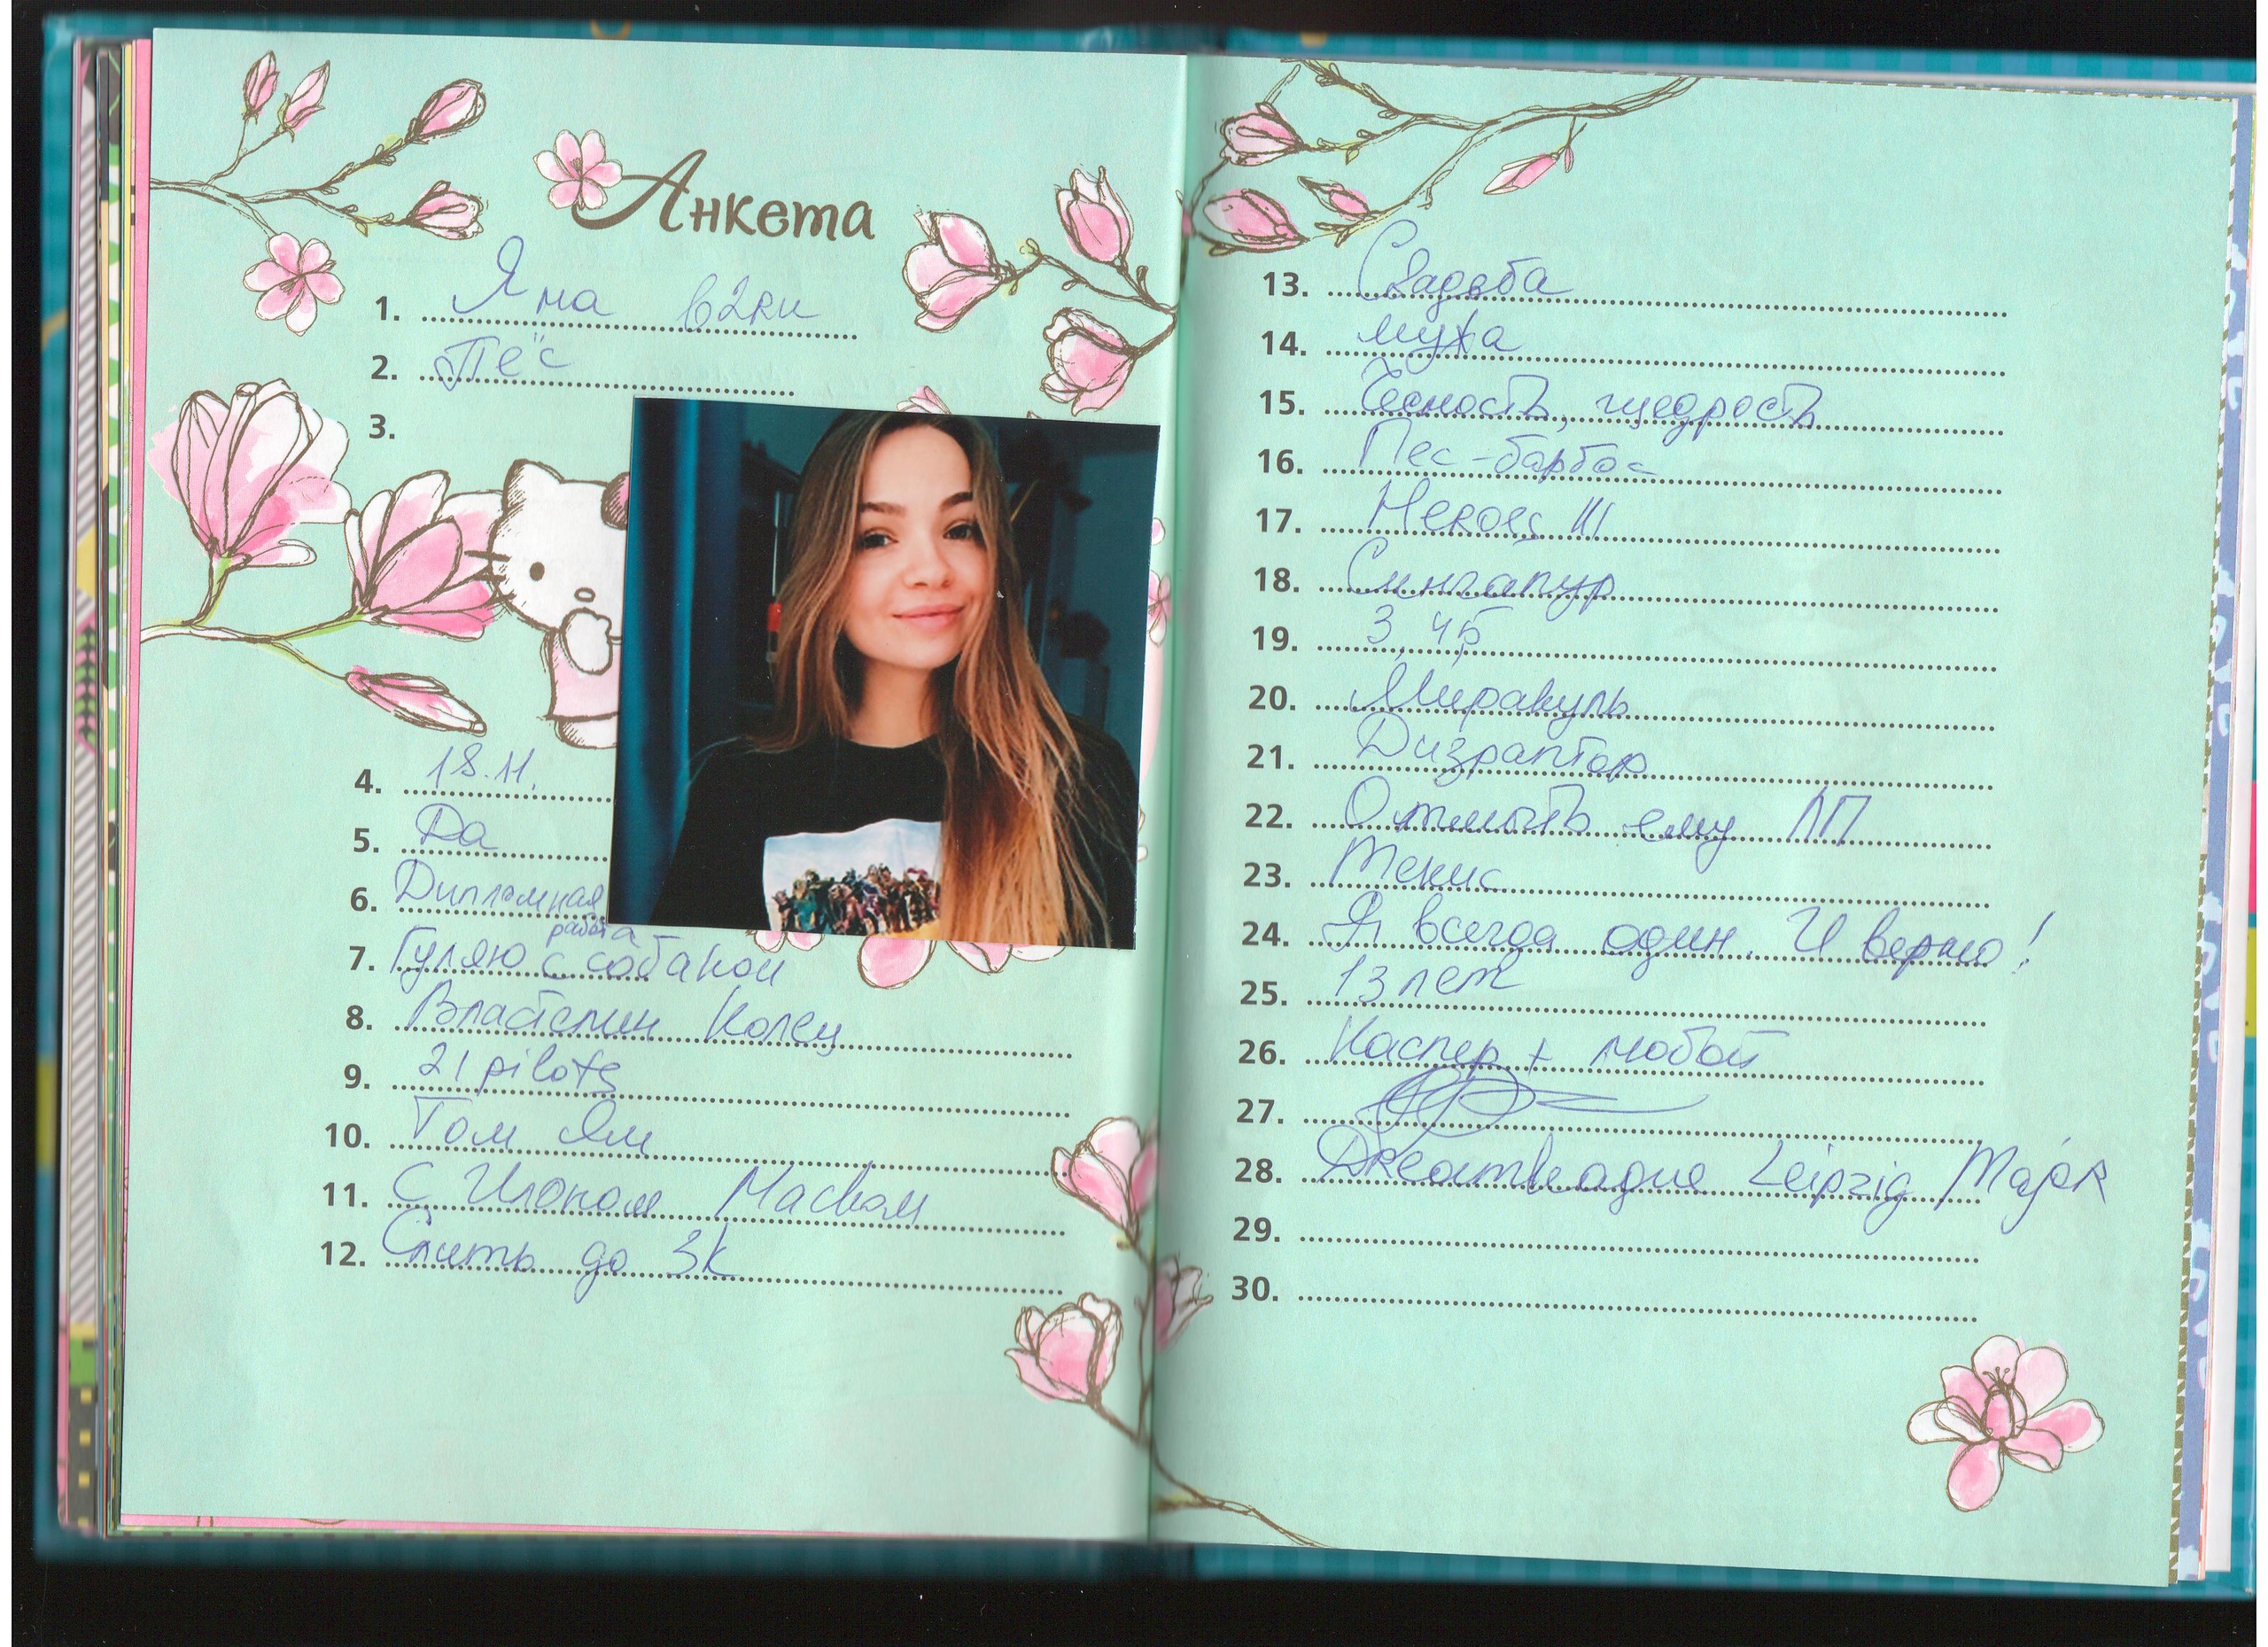 Анкета
1. Яна
2. Пёс
3.
4. 18.11.
5. Да
6. Дипломная
работа
7. Гуляю с собакой
8. Властелин Колец
9. 21 pilots
10. Том Ям
11. С Илоном Маском
12. Слить до 3k
13. Свадьба
14. мужа
15. Чесность, щедрость
16. Пес-барбос
17. Heroes III
18. Сингапур
19. 3,45
20. Миракуль
21. Дизраптор
22. Отмыть ему ЛП
23. Тенис
24. Я всегда один. И верно!
25. 13 лет
26. Каспер +
27.
28. Dreamleague Leipzig Major
29.
30.